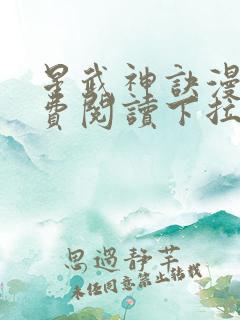 星武神訣漫
費閱讀下拉
思過靜芊
未任同意禁止轉載